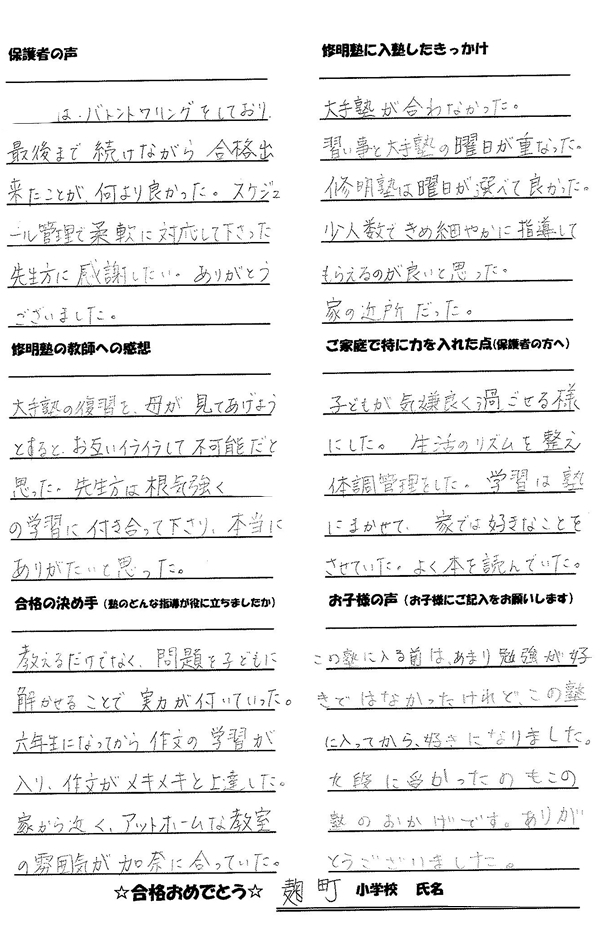 保護者の声
は、バトントワリングをしており、
最後まで続けながら合格出
来たことが、何より良かった。スケジュ
ール管理で柔軟に対応して下さった
先生方に感謝したい。ありがとう
ございました。
修明塾の教師への感想
大手塾の復習を、母が見てあげよう
とすると、お互いイライラして不可能だと
思った。先生方は根気強く
の学習に付き合って下さり、本当に
ありがたいと思った。
合格の決め手(塾のどんな指導が役に立ちましたか)
教えるだけでなく、問題を子どもに
解かせることで実力が付いていった。
六年生になってから作文の学習が
入り、作文がメキメキと上達した。
家から近く、アットホームな教室
の雰囲気が加奈に合っていた。
修明塾に入塾したきっかけ
大手塾が合わなかった。
習い事と大手塾の曜日が重なった。
修明塾は曜日が選べて良かった。
少人数できめ細やかに指導して
もらえるのが良いと思った。
家の近所だった。
ご家庭で特に力を入れた点(保護者の方へ)
子どもが気嫌良く過ごせる様
にした。生活のリズムを整え
体調管理をした。学習は塾
にまかせて、家では好きなことを
させていた。よく本を読んでいた。
お子様の声(お子様にご記入をお願いします)
この塾に入る前は、あまり勉強が好
きではなかったけれど、この塾
に入ってから、好きになりました。
九段に受かったのもこの
塾のおかげです。ありが
とうございました。
☆合格おめでとう☆ 麹町 小学校 氏名